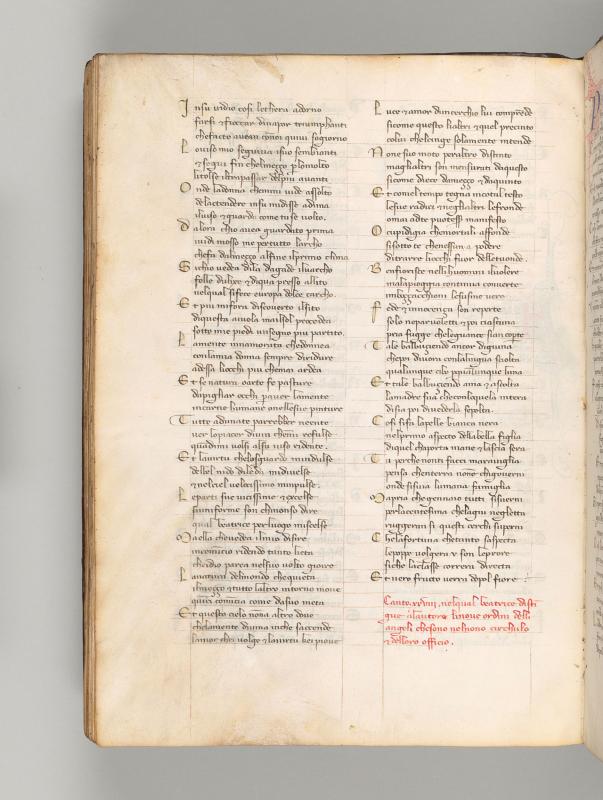 In su vidio cosi lethera adorno
farsi & fioccar diuapor triumphanti
che facto auean cō noi quiui sogiorno
Louiso mio seguiua isuo sembianti
& segui fin chelmeço ꝑ lo molto
litolse iltrapassar del piu auanti
Onde ladonna che mi uide assolto
delattendere in su mi disse adima
iluiso & guarda come tu se uolto.
Dalora chio auea guardato prima
iui mosso me per tutto larcho
che fa dal meço al fine il primo clima
Sichio uedea dila da gade iluarcho
folle dulixe & diqua presso allito
nel qual si fece europa dolce carcho.
Et piu mifora discouerto ilsito
di questa aiuola mailsol procedea
sotto imie piedi unsegno piu partito.
Lamente innamorata che donnea
con lamia donna sempre diridure
adessa liocchi piu che mai ardea
Et se natura o arte fe pasture
dapigliar occhi ꝑ auer lamente
in carne humana o nellesue pinture
Tutte adunate parrebber neente
uer lo piacer diuin che mi refulse
quādi mi uolsi al suo uiso ridente.
Et lauirtu chelosguardo mindulse
del bel nido di leda mi diuelse
& nelciel uelocissimo mimpulse.
Le parti sue uicissime & excelse
si uniforme son chi non so dire
qual beatrice per luogo mi scelse
Ma ella che uedea ilmio disire
incomincio ridendo tanto lieta
che dio parea nel suo uolto gioire
Lanatura del mondo che quieta
il meçço & tutto laltro intorno moue
quīci comincia come da sua meta
Et questo cielo nona altro doue
che la mente diuina in che saccende
lamor chel uolge & lauirtu chei pioue
Luce & amor dun cerchio lui comprende
si come questo lialtri & quel precinto
colui che lcinge solamente intende
None suo moto per altro distinto
magli altri son mensurati da questo
si come diece da meço & da quinto
Et come l tempo tegna in cotal testo
lesue radici & negli altri lefronde
omai a dte puotesser manifesto
O cupidigia che mortali affonde
si sotto te che nessun a podere
di trarre liocchi fuor delle tue onde.
Ben fiorisce nelli huomini iluolere
ma la pioggia continua conuerte
in boççacchioni le susine uere
Fede & innocença son reperte
solo ne paruoletti & poi ciascuna
pria fugge che le guance sian coꝑte
Tale balbuçiendo ancor digiuna
che poi diuora con la lingua sciolta
qualunque cibo per qualunque luna
Et tale balbuçiendo ama & ascolta
lamadre sua che con loquela intera
disia poi di uederla sepolta.
Cosi si fa la pelle bianca nera
nel primo aspecto della bella figlia
di quel chaporta mane & lascia sera
Tu perche non ti facci marauiglia
pensa che n terra none chi gouerni
onde si suia lumana famiglia
Ma pria che gennaio tutti si suerni
per la centesima che la giu negletta
ruggeran si questi cerchi superni
Che la fortuna che tanto saspecta
le poppe uolgera u son le prore
si che la classe correra directa
Et uero fructo uerra dopo l fiore :
Canto .xxviij. nel qual beatrice disti
gue a lautore li noue ordini delli
angeli che sono nel nono circhulo
& delloro officio .